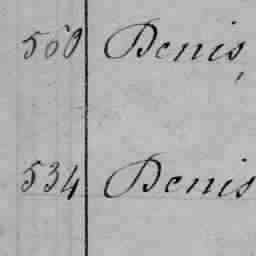 560 Denis,
534 Denis